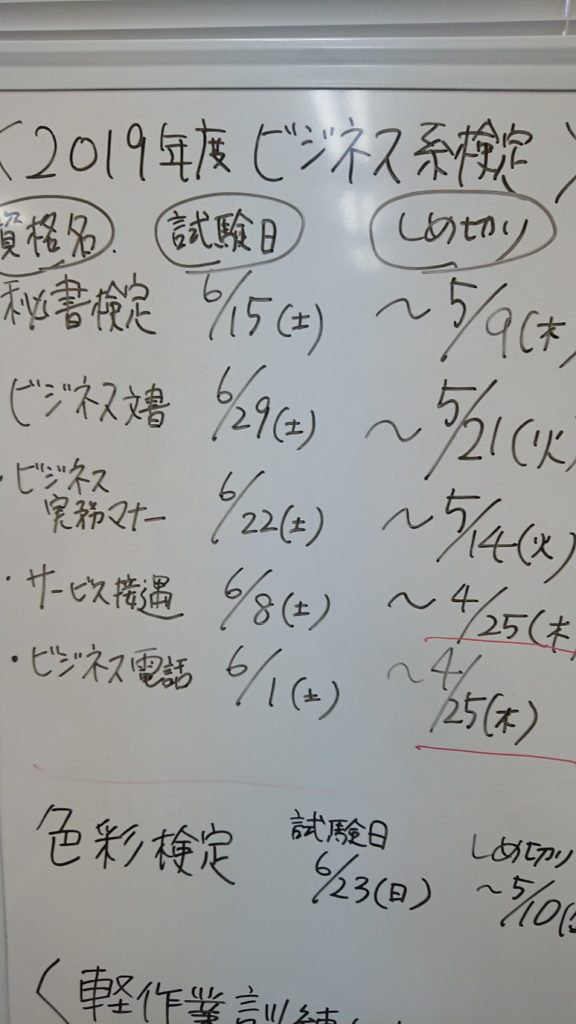 〈2019年度 ビジネス系検定〉
資格名. 試験日 しめ切り
秘書検定 6/15(土) ～5/9(木)
ビジネス文書 6/29(土) ～5/21(火)
・ビジネス
実務マナー 6/22(土) ～5/14(火)
・サービス接遇 6/8(土) ～4/25(木
・ビジネス電話 6/1(土) ～4/25(木)
色彩検定 試験日 しめ切り
6/23(日) ～5/10(
〈軽作業訓練